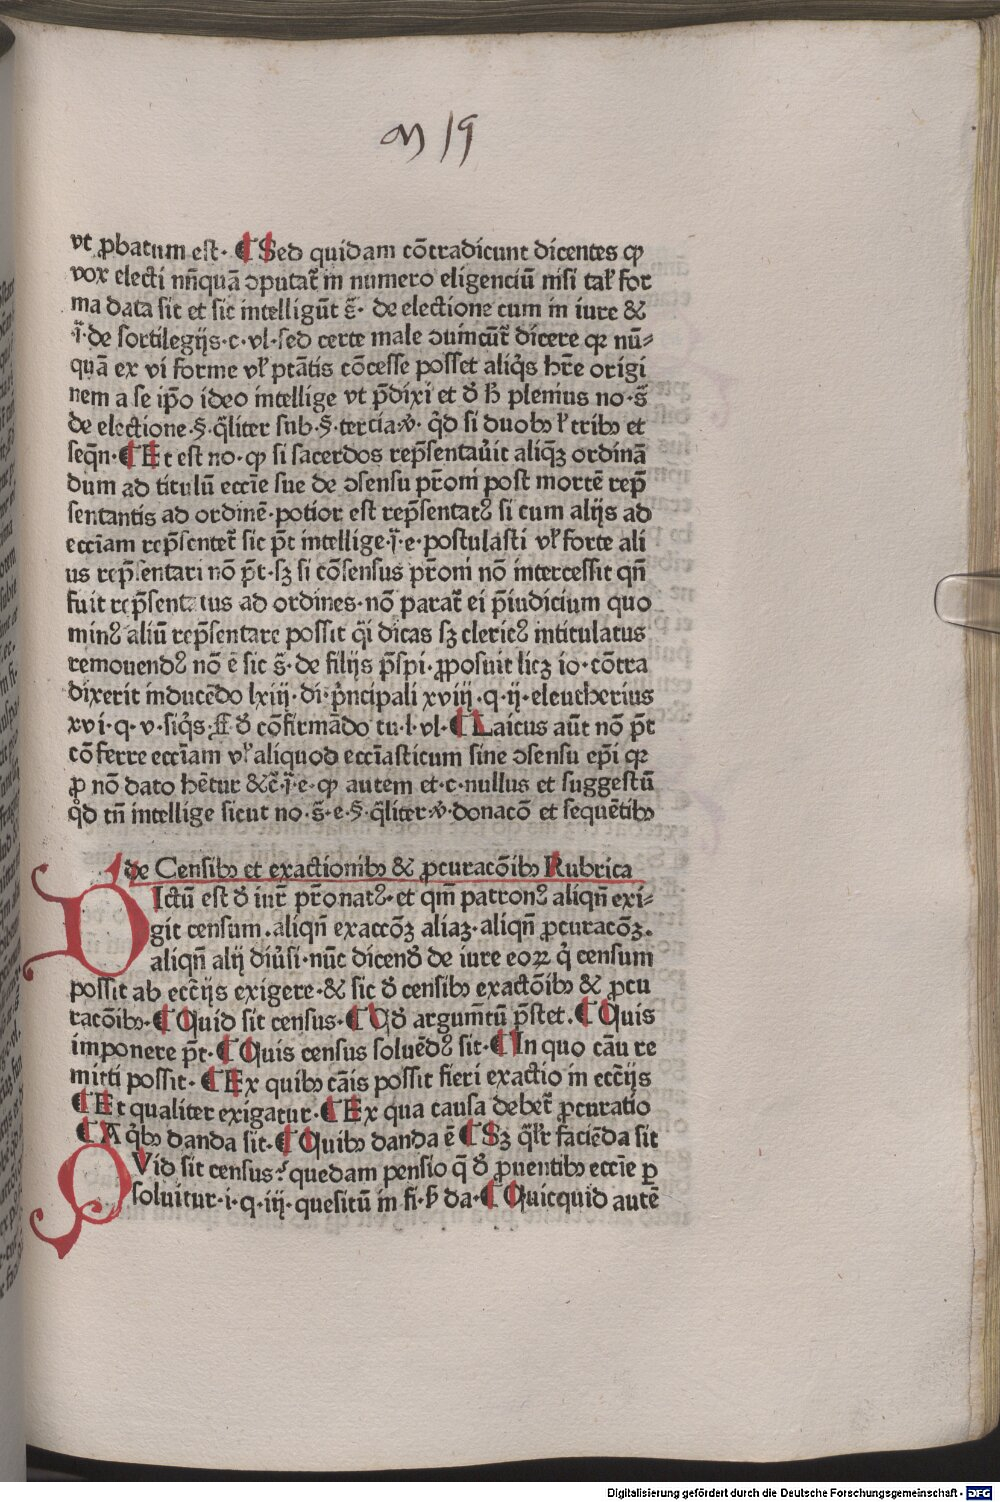 m 19
vt ꝓbatum est· ¶ Sed quidam cōtradicunt dicentes ꝙ
vox electi nn̄quā ↄputat᷑ in numero eligenciū nisi tal̛ for
ma data sit et sic intelligūt c̄· de electione cum in iure &
·j̄·de sortilegijs·c·vl·sed certe male ↄuincūt᷑ dicere qꝛ nū⸗
quā ex vi forme vl̛ ptātis cōcesse posset aliq̄s hr̄e origi
nem a se ip̄o ideo intellige vt p̄dixi et ð ħ plenius no·s̄
de electione·§·q̄liter sub·§·tercia·v̄· q̄d si duobꝫ l̛ tribꝫ et
seq̄n·¶ Et est no·ꝙ si sacerdos rep̄sentauit aliq̄ꝫ ordinā
dum ad titulū eccīe sue de ↄsensu pr̄oni post mortē rep̄
sentantis ad ordinē·potior est rep̄sentatꝰ si cum alijs ad
eccīam rep̄sentet᷑ sic p̄t intellige·j̄·e·postulasti vl̛ forte ali
us rep̄sentari nō p̄t·sꝫ si cōsensus pr̄oni nō intercessit qn̄
fuit rep̄sentatus ad ordines·nō parat᷑ ei p̄iudicium quo
minꝰ aliū rep̄sentare possit q̄i dicas sꝫ clericꝰ intitulatus
remouendꝰ nō ē sic s̄· de filijs p̄spi·ꝓposuit licꝫ io·cōtra
dixerit inducēdo lxiij·di·p̄ncipali xviij·q·ij·eleutherius
xvi·q·v·siq̄s·ff̄·ð cōfirmādo tu·l·vl·¶ Laicus aūt nō p̄t
cōferre eccīam vl̛ aliquod eccīasticum sine ↄsensu ep̄i qꝛ
ꝓ nō dato hētur &c̄·j̄·e·ꝙ autem et·c·nullus et suggestū
q̄d tn̄ intellige sicut no·s̄·e·§·q̄liter·v̄·donacō et sequētibꝫ
de Censibꝫ et exactionibꝫ & ꝓcuracōibꝫ Rubrica
DIctū est ð iur̄ pr̄onatꝰ·et qm̄ patronꝰ aliqn̄ exi⸗
git censum·aliqn̄ exaccōꝫ aliaꝫ·aliqn̄ ꝓcuracōꝫ·
aliqn̄ alij diūsi·nūc dicenð de iure eoꝝ q̄ censum
possit ab eccījs exigere·& sic ð censibꝫ exactōibꝫ & ꝓcu
racōibꝫ·¶ Quid sit census·¶ Qð argum̄tū p̄stet·¶ Quis
imponere p̄t·¶ Quis census soluēdꝰ sit·¶ In quo cāu re
mitti possit·¶ Ex quibꝫ cāis possit fieri exactio in eccījs
¶ Et qualiter exigatur·¶ Ex qua causa debet᷑ ꝓcuratio
¶ A q̄bꝫ danda sit·¶ Quibꝫ danda ē ¶ Sꝫ q̄lr̄ faciēda sit
QVid sit census? quedam pensio q̄ ð ꝓuentibꝫ eccīe ꝑ
soluitur·i·q·iij·quesitū in fi·ħ da·¶ Quicquid autē
Digitalisierung gefördert durch die Deutsche Forschungsgemeinschaft - DFG